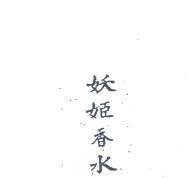 妖姬香水